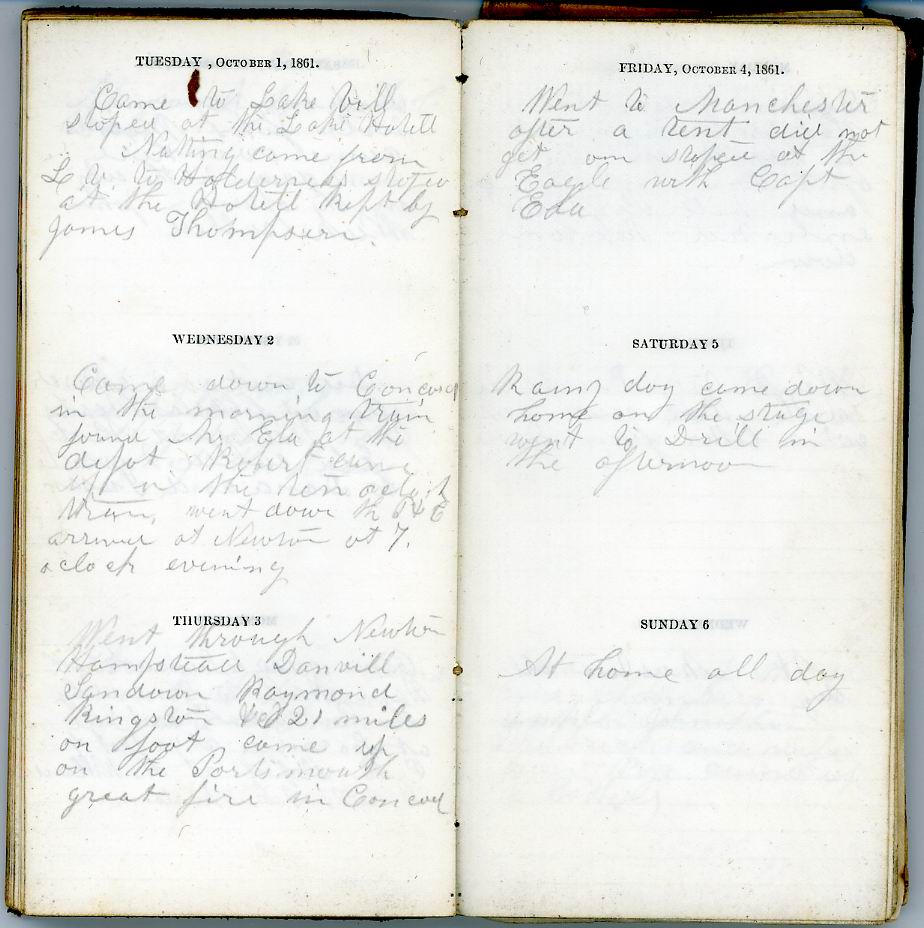 TUESDAY, OCTOBER 1, 1861.
Came to Lake Vill
stoped at the Lake Hotell
Nathing come from
L V. to Holderness stoped
at the Hotell kept by
James Thompson.
WEDNESDAY 2
Came down to Concord
in the morning train
found Mr Ela at the
depot Robert came
up in the ten oclock
train, went down the
arrived at Newton at 7.
oclock evening
THURSDAY 3
Went through Newton
Hampstead Danvill
Sandown Raymond
Kingston 21 miles
on foot come up
on the Portsmouth
great fire in Concord
FRIDAY, OCTOBER 4, 1861.
Went to Manchester
after a tent did not
get om stoped at the
Eagle with Capt
Ela
SATURDAY 5
Rainy day come down
home on the stage
went to Drill in
the afternoon
SUNDAY 6
At home all day